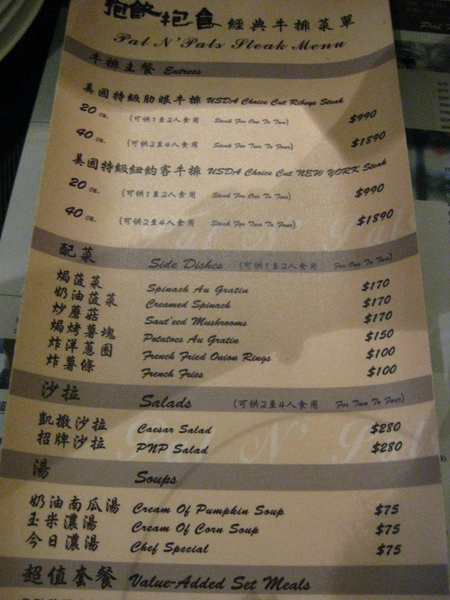 抱飲抱食 經典牛排菜單
Pal N' Pals Steak Menu
牛排主餐 Entrees
美國特級肋眼牛排 USDA Choice Cut Ribeye Steak
20 oz. (可供1至2人食用 Steak For One To Two) $990
40 oz. (可供2至4人食用 Steak For Two To Four) $1890
美國特級紐約客牛排 USDA Choice Cut NEW YORK Steak
20 oz. (可供1至2人食用 Steak For One To Two) $990
40 oz. (可供2至4人食用 Steak For Two To Four) $1890
配菜 Side Dishes (可供1至2人食用 For One To Two)
焗菠菜 Spinach Au Gratin $170
奶油菠菜 Creamed Spinach $170
炒蘑菇 Saut'eed Mushrooms $170
焗烤薯塊 Potatoes Au Gratin $150
炸洋蔥圈 French Fried Onion Rings $100
炸薯條 French Fries $100
沙拉 Salads (可供2至4人食用 For Two To Four)
凱撒沙拉 Caesar Salad $280
招牌沙拉 PNP Salad $280
湯 Soups
奶油南瓜湯 Cream Of Pumpkin Soup $75
玉米濃湯 Cream Of Corn Soup $75
今日濃湯 Chef Special $75
超值套餐 Value-Added Set Meals